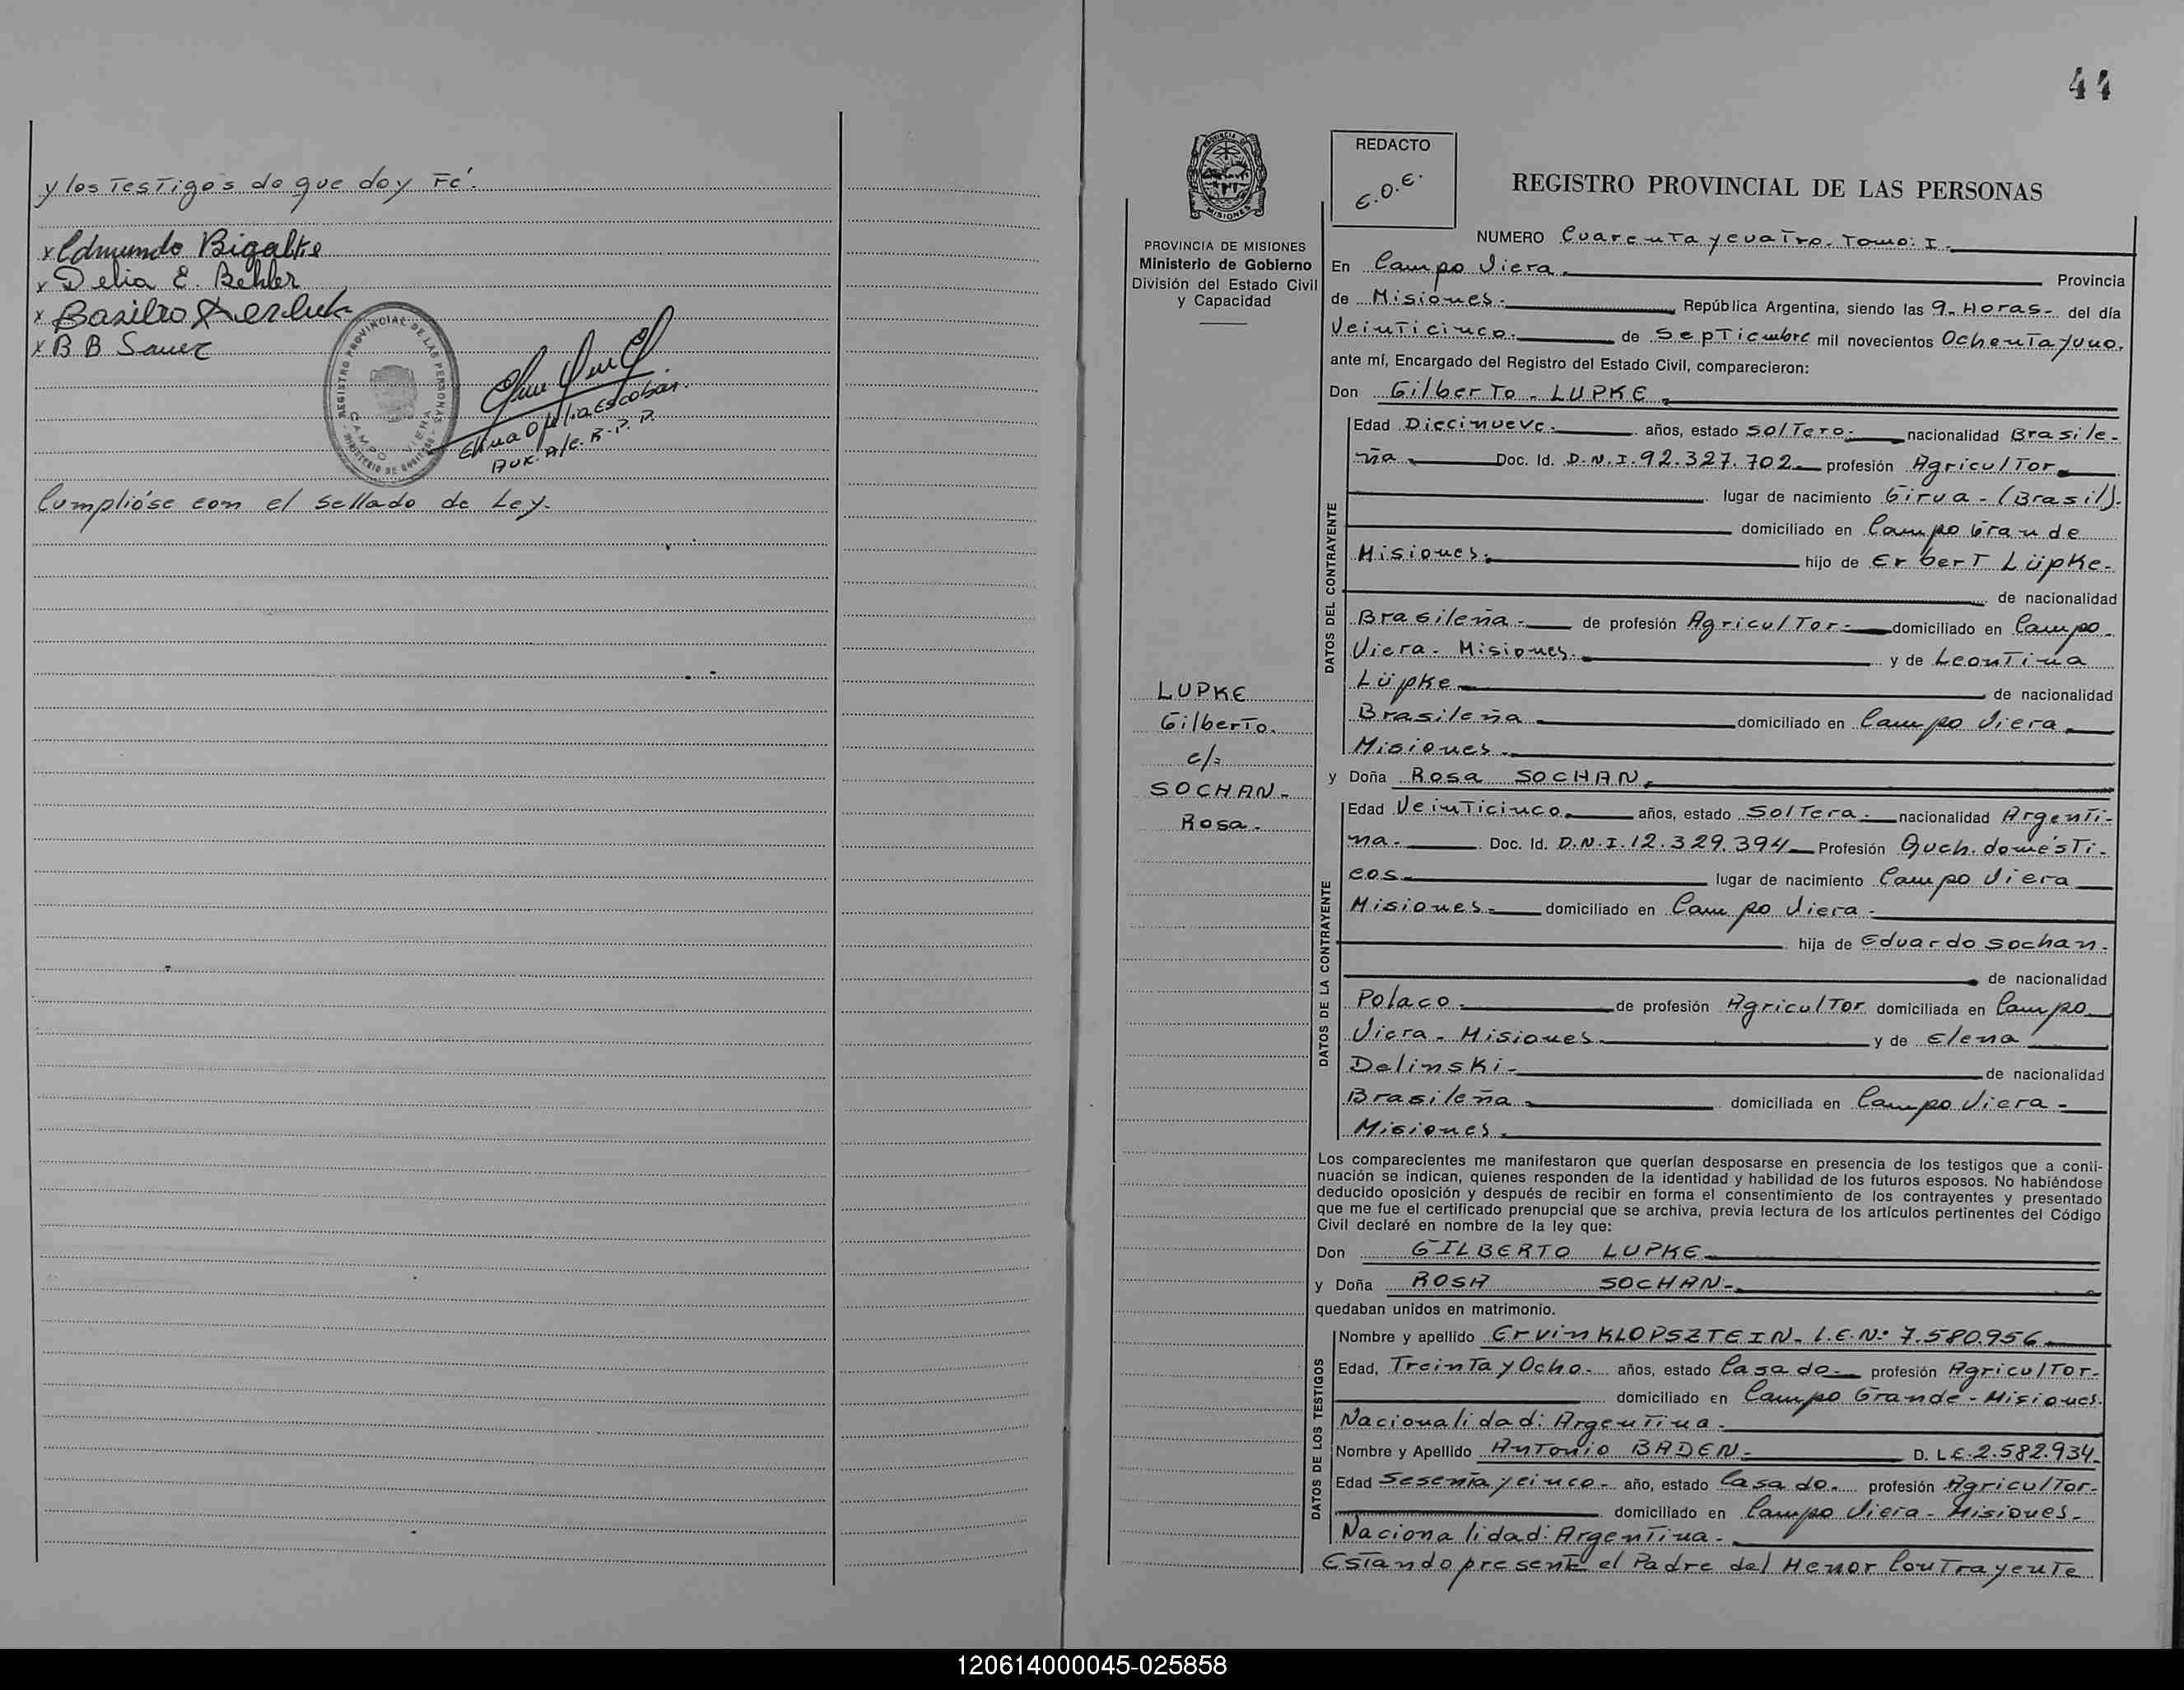 y los Testigos de que doy Fé.
x Edmundo Bigalke
x Delia E. Behler
x Basilio
x B B Sauer
REGISTRO PROVINCIAL DE LAS PERSONAS
MINISTERIO DE GOBIERNO
CAMPO VIERA
Elma Ofelia Escobar.
Aux. A/C. R.P.P.
Cumplióse con el Sellado de Ley.
44
REDACTO
E.O.E.
REGISTRO PROVINCIAL DE LAS PERSONAS
PROVINCIA DE MISIONES
Ministerio de Gobierno
División del Estado Civil
y Capacidad
LUPKE
Gilberto.
c/:
SOCHAN-
Rosa.
NUMERO Cuarenta y cuatro. Tomo: I.
En Campo Viera. Provincia
de Misiones. República Argentina, siendo las 9- Horas- del día
Veinticinco. de Septiembre mil novecientos Ochenta y uno.
ante mí, Encargado del Registro del Estado Civil, comparecieron:
Don Gilberto - LUPKE.
DATOS DEL CONTRAYENTE
Edad Diecinueve. años, estado Soltero. nacionalidad Brasile-
ña. Doc. Id. D.N.I. 92.327.702. profesión Agricultor.
lugar de nacimiento Girua - (Brasil).
domiciliado en Campo Grande
Misiones. hijo de Erbert Lüpke-
de nacionalidad
Brasileña. de profesión Agricultor. domiciliado en Campo
Viera - Misiones. y de Leontina
Lüpke de nacionalidad
Brasileña domiciliado en Campo Viera
Misiones.
y Doña Rosa SOCHAN.
DATOS DE LA CONTRAYENTE
Edad Veinticinco. años, estado Soltera. nacionalidad Argenti-
na. Doc. Id. D.N.I. 12.329.394 Profesión Queh. domésti-
cos. lugar de nacimiento Campo Viera
Misiones. domiciliado en Campo Viera.
hija de Eduardo Sochan.
de nacionalidad
Polaco. de profesión Agricultor domiciliada en Campo
Viera - Misiones. y de Elena
Delinski. de nacionalidad
Brasileña. domiciliada en Campo Viera.
Misiones.
Los comparecientes me manifestaron que querían desposarse en presencia de los testigos que a conti-
nuación se indican, quienes responden de la identidad y habilidad de los futuros esposos. No habiéndose
deducido oposición y después de recibir en forma el consentimiento de los contrayentes y presentado
que me fue el certificado prenupcial que se archiva, previa lectura de los artículos pertinentes del Código
Civil declaré en nombre de la ley que:
Don GILBERTO LUPKE
y Doña ROSA SOCHAN-
quedaban unidos en matrimonio.
DATOS DE LOS TESTIGOS
Nombre y apellido Ervin KLOPSZTEIN- L.E.Nº 7.580.956
Edad, Treinta y Ocho- años, estado Casado. profesión Agricultor-
domiciliado en Campo Grande - Misiones.
Nacionalidad: Argentina.
Nombre y Apellido Antonio BADEN- D. L.E. 2.582.934
Edad Sesenta y cinco- año, estado Casado. profesión Agricultor-
domiciliado en Campo Viera - Misiones.
Nacionalidad: Argentina.
Estando presente el Padre del Menor Contrayente
120614000045-025858